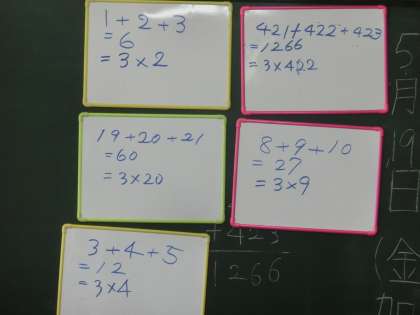 1+2+3
=6
=3×2
421+422+423
=1266
=3×422
19+20+21
=60
=3×20
8+9+10
=27
=3×9
3+4+5
=12
=3×4
+423
1266
5月19日(金